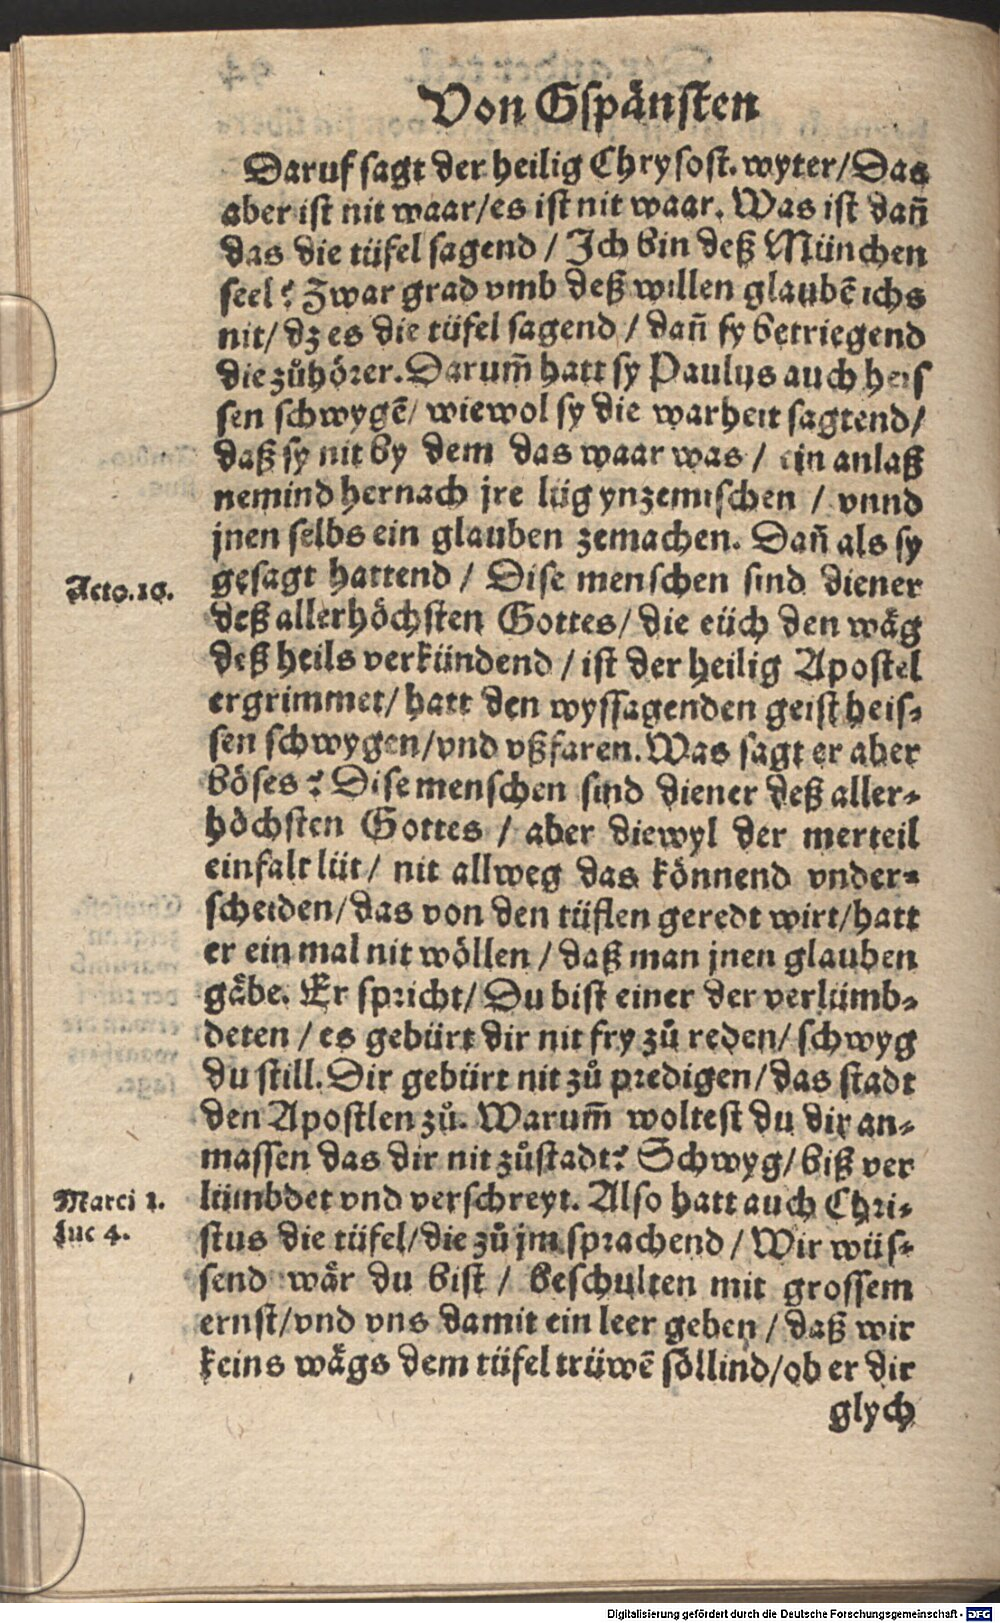 Von Gspånsten
Daruf sagt der heilig Chrysost. wyter/Das
aber ist nit waar/es ist nit waar. Was ist dañ
das die tüfel sagend / Ich bin deß München
seel? Zwar grad vmb deß willen glaubē ichs
nit/ dz es die tüfel sagend / dañ sy betriegend
die zůhörer. Darum̃ hatt sy Paulus auch heis
sen schwygē/ wiewol sy die warheit sagtend/
daß sy nit by dem das waar was / ein anlaß
nemind hernach jre lüg ynzemischen / vnnd
jnen selbs ein glauben zemachen. Dañ als sy
Acto.16.
gesagt hattend / Dise menschen sind diener
deß allerhöchsten Gottes/ die eüch den wåg
deß heils verkündend / ist der heilig Apostel
ergrimmet/ hatt den wyssagenden geist heis-
sen schwygen/vnd vßfaren. Was sagt er aber
böses? Dise menschen sind diener deß aller-
höchsten Gottes / aber diewyl der merteil
einfalt lüt/ nit allweg das könnend vnder-
scheiden/das von den tüflen geredt wirt/hatt
er ein mal nit wöllen / daß man jnen glauben
gåbe. Er spricht/ Du bist einer der verlümb-
deten / es gebürt dir nit fry zů reden/ schwyg
du still. Dir gebürt nit zů predigen/das stadt
den Apostlen zů. Warum̃ woltest du dir an-
massen das dir nit zůstadt? Schwyg/ biß ver
Marci 1.
lümbdet vnd verschreyt. Also hatt auch Chri-
Luc 4.
stus die tüfel/die zů jm sprachend / Wir wüs-
send wår du bist / beschulten mit grossem
ernst/vnd vns damit ein leer geben / daß wir
keins wågs dem tüfel trüwē söllind/ob er dir
glych
Digitalisierung gefördert durch die Deutsche Forschungsgemeinschaft - DFG